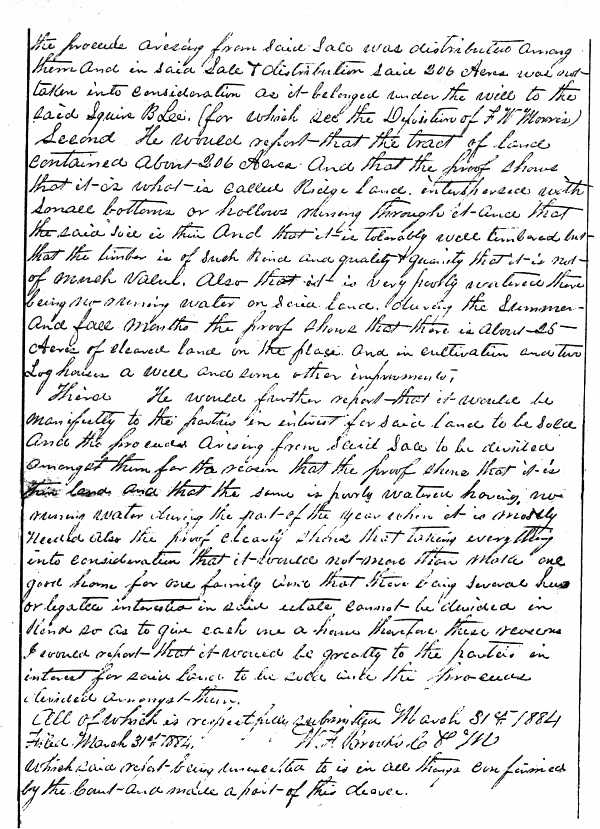 the proceeds arising from said Sale was distributed among
them And in said Sale & distribution said 206 Acres was not
taken into consideration as it belonged under the will to the
said Squire B Lee. (for which see the Deposition of F W Morris)
Second He would report that the tract of land
contained About 206 Acres And that the proof shows
that it is what is called Ridge land. interspersed with
small bottoms or hollows running through it And that
the said soil is thin And that it is tolerably well timbered but
that the timber is of such kind and quality & quanity that it is not
of much value. Also that it is very poorly watered there
being no running water on said land. during the Summer
And fall months the proof shows that there is about 25
Acres of cleared land on the place And in cultivation and two
Log houses a well and some other improvements,
Third He would further report that it would be
manifestly to the parties in interest for said land to be sold
And the proceeds Arising from Said Sale to be divided
amongst them for the reason that the proof shows that it is
thin land And that the same is poorly watered having, no
running water during the part of the year when it is mostly
needed Also the proof clearly shows that taking everything
into consideration that it would not more than make one
good home for one family And that there being several heirs
or legatees interested in said estate cannot be divided in
Kind so as to give each one a home therefore these reasons
I would report that it would be greatly to the parties in
interest for said land to be sold and the proceeds
divided amongst them.
All of which is respectfully submitted March 31st 1884
Filed March 31st 1884. W. F. Brooks C & M
Which said report being unexcepted to is in all things confirmed
by the Court And made a part of this decree.